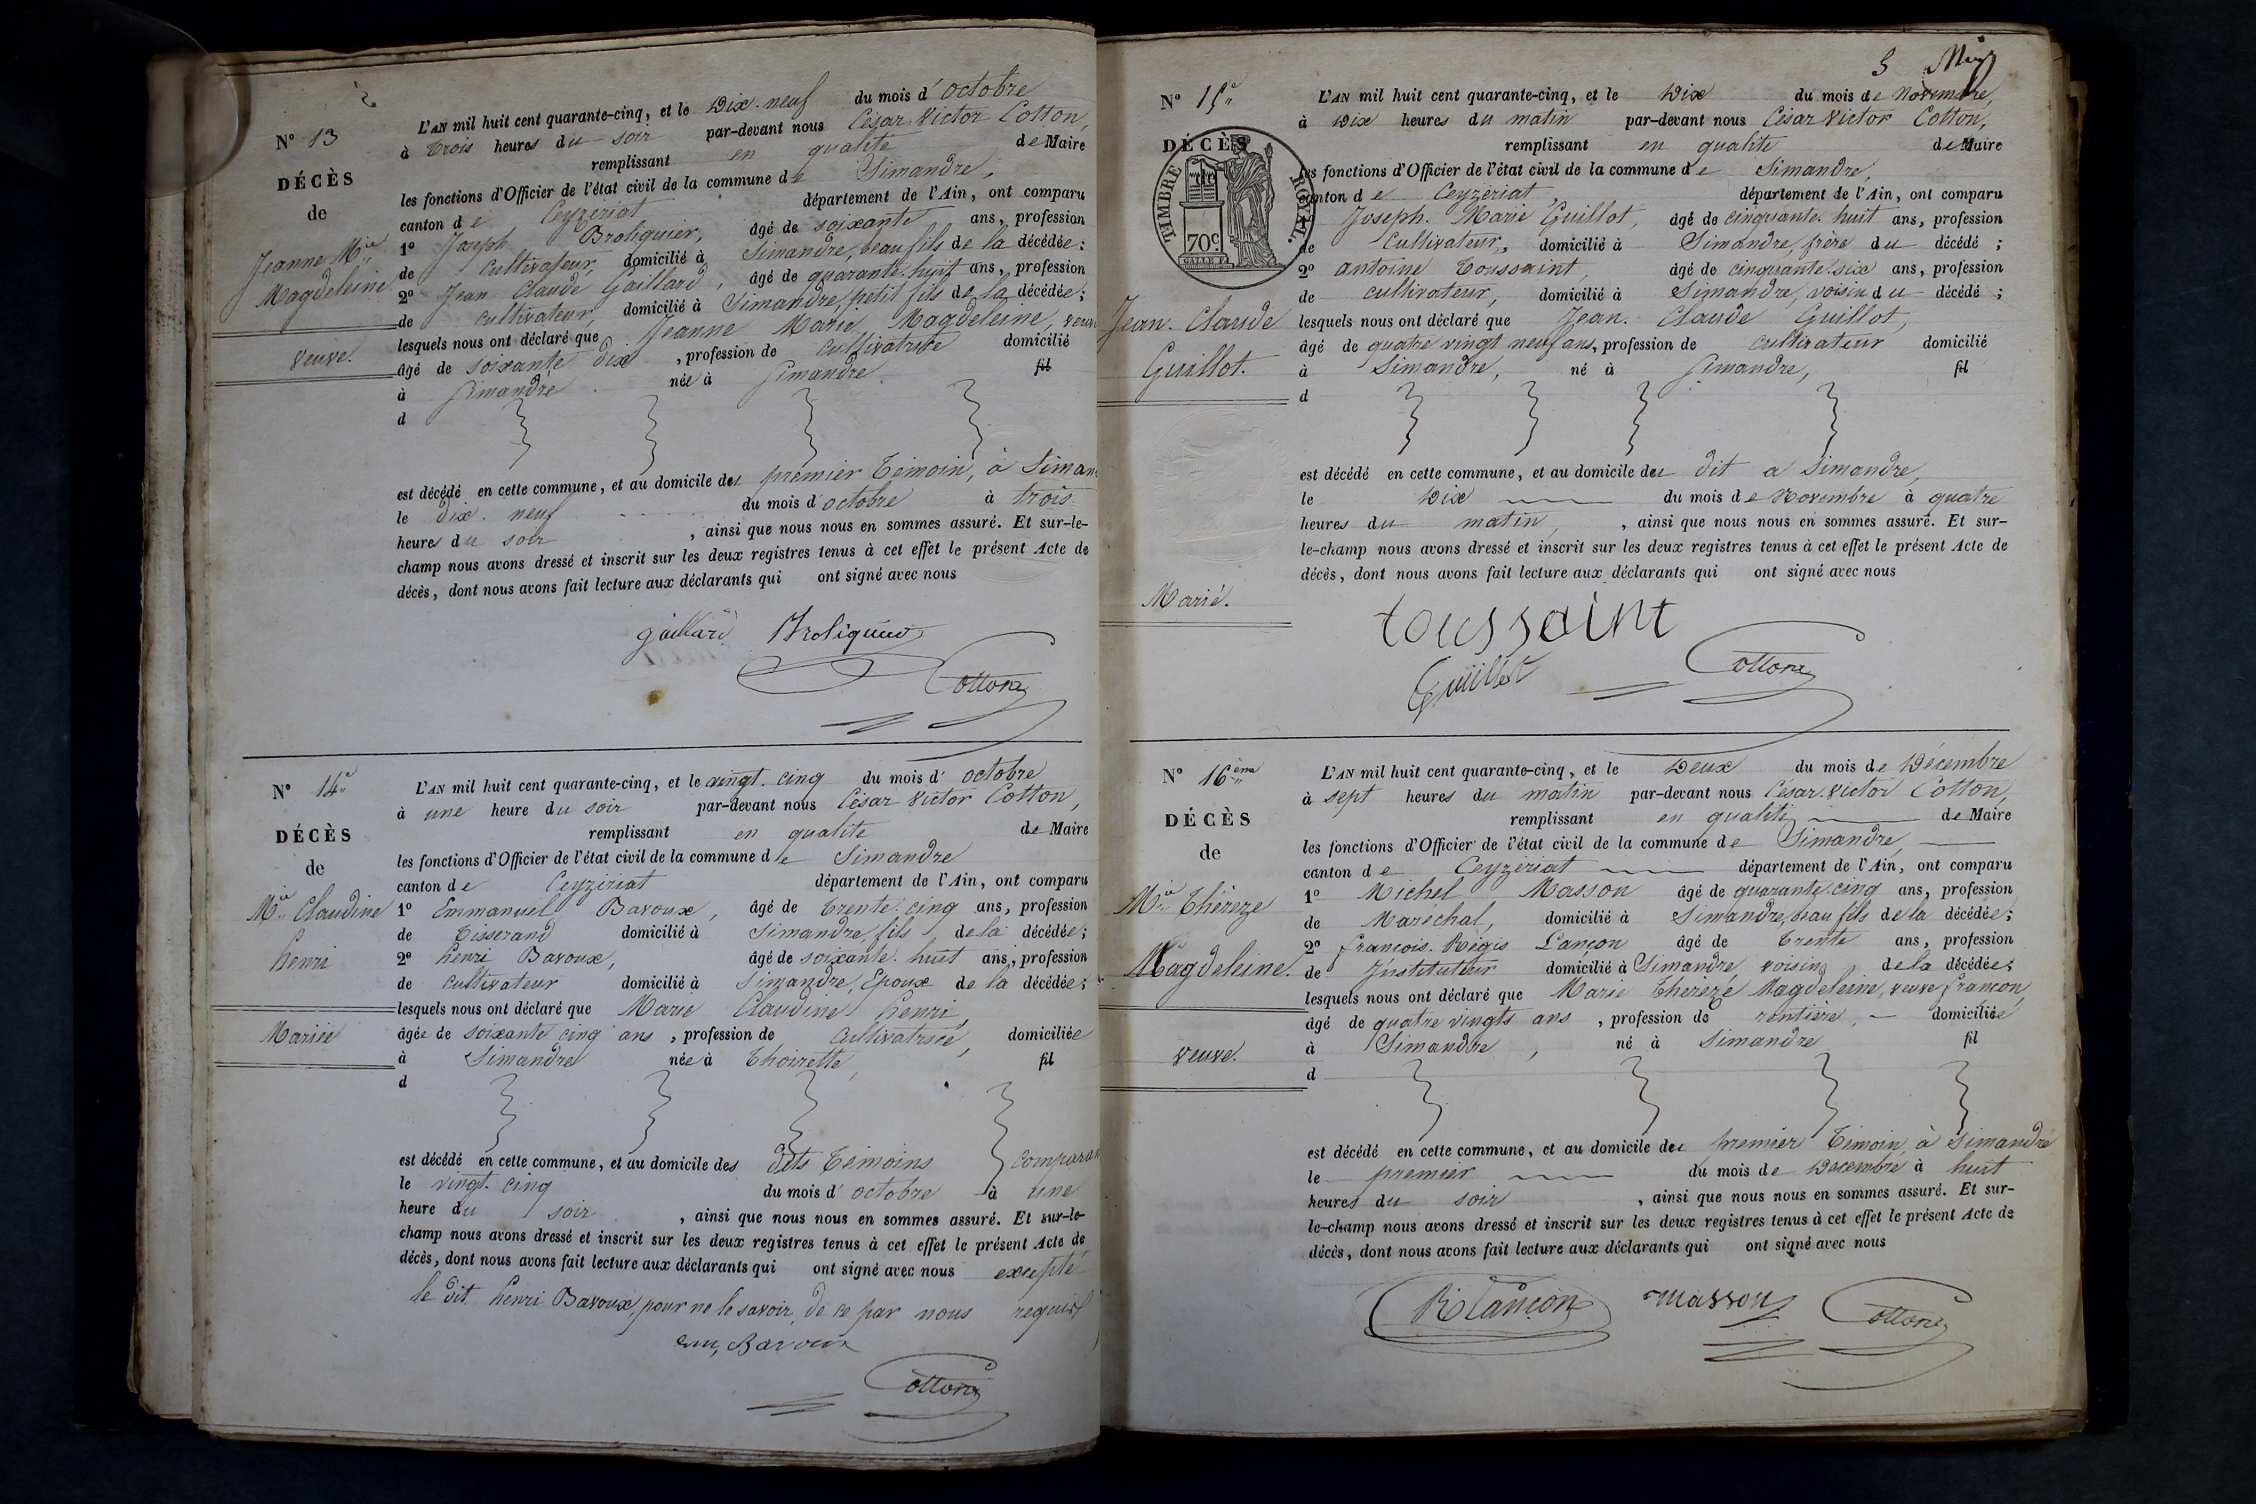 N° 13
DÉCÈS
de
Jeanne Mie
Magdeleine
veuve.
L'AN mil huit cent quarante-cinq, et le Dix-neuf du mois d'octobre
à trois heures du soir par-devant nous César Victor Cotton,
remplissant en qualité de Maire
les fonctions d'Officier de l'état civil de la commune de Simandre,
canton de Ceyzériat département de l'Ain, ont comparu
1° Joseph Broliquier, âgé de soixante ans, profession
de cultivateur, domicilié à Simandre, beau fils de la décédée;
2° Jean Claude Gaillard, âgé de quarante-huit ans, profession
de cultivateur, domicilié à Simandre, petit fils de la décédée;
lesquels nous ont déclaré que Jeanne Marie Magdeleine, veuve
âgé de soixante dix, profession de cultivatrice domicilié
à Simandre née à Simandre. fil
d
est décédé en cette commune, et au domicile du premier témoin, à Siman
le dix-neuf du mois d'octobre à trois
heures du soir, ainsi que nous nous en sommes assuré. Et sur-le-
champ nous avons dressé et inscrit sur les deux registres tenus à cet effet le présent Acte de
décès, dont nous avons fait lecture aux déclarants qui ont signé avec nous
gaillard Broliquier
Cotton
N° 14e
DÉCÈS
de
Mie Claudine
henri
Mariée
L'AN mil huit cent quarante-cinq, et le vingt-cinq du mois d'octobre
à une heure du soir par-devant nous César Victor Cotton,
remplissant en qualité de Maire
les fonctions d'Officier de l'état civil de la commune de Simandre
canton de Ceyzériat département de l'Ain, ont comparu
1° Emmanuel Bavoux, âgé de trente-cinq ans, profession
de tisserand domicilié à Simandre, fils de la décédée;
2° henri Bavoux, âgé de soixante-huit ans, profession
de cultivateur domicilié à Simandre, Epoux de la décédée;
lesquels nous ont déclaré que Marie Claudine henri,
âgée de soixante cinq ans, profession de cultivatrice, domiciliée
à Simandre née à Thoirette, fil
d
est décédé en cette commune, et au domicile des dits témoins comparan
le vingt-cinq du mois d'octobre à une
heure du soir, ainsi que nous nous en sommes assuré. Et sur-le-
champ nous avons dressé et inscrit sur les deux registres tenus à cet effet le présent Acte de
décès, dont nous avons fait lecture aux déclarants qui ont signé avec nous excepté
le dit henri Bavoux, pour ne le savoir, de ce par nous requis
em, Bavoux
Cotton
3
N° 15e
DÉCÈS
de
TIMBRE ROYAL.
70c
Jean-Claude
Guillot.
Marié.
L'AN mil huit cent quarante-cinq, et le Dix du mois de Novembre,
à Dix heures du matin par-devant nous César Victor Cotton,
remplissant en qualité de Maire
les fonctions d'Officier de l'état civil de la commune de Simandre,
canton de Ceyzériat, département de l'Ain, ont comparu
Joseph-Marie Guillot, âgé de cinquante-huit ans, profession
de cultivateur, domicilié à Simandre, frère du décédé;
2° antoine Toussaint, âgé de cinquante-six ans, profession
de cultivateur, domicilié à Simandre, voisin du décédé;
lesquels nous ont déclaré que Jean-Claude Guillot,
âgé de quatre vingt neuf ans, profession de cultivateur domicilié
à Simandre, né à Simandre, fil
d
est décédé en cette commune, et au domicile du dit a Simandre,
le Dix du mois de Novembre à quatre
heures du matin, ainsi que nous nous en sommes assuré. Et sur-
le-champ nous avons dressé et inscrit sur les deux registres tenus à cet effet le présent Acte de
décès, dont nous avons fait lecture aux déclarants qui ont signé avec nous
toussaint
Guillot Cotton
N° 16ème
DÉCÈS
de
Mie Thérèze
Magdeleine.
veuve.
L'AN mil huit cent quarante-cinq, et le Deux du mois de Décembre
à sept heures du matin par-devant nous César-Victor Cotton,
remplissant en qualité de Maire
les fonctions d'Officier de l'état civil de la commune de Simandre,
canton de Ceyzériat département de l'Ain, ont comparu
1° Michel Masson âgé de quarante-cinq ans, profession
de Maréchal, domicilié à Simandre, beau fils de la décédée;
2° françois-Régis Lançon âgé de trente ans, profession
de Instituteur domicilié à Simandre, voisin de la décédée;
lesquels nous ont déclaré que Marie Thereze Magdeleine, veuve françon,
âgé de quatre vingts ans, profession de rentière, domiciliée
à Simandre, né à Simandre fil
d
est décédé en cette commune, et au domicile du premier témoin, à Simandre
le premier du mois de Décembre à huit
heures du soir, ainsi que nous nous en sommes assuré. Et sur-
le-champ nous avons dressé et inscrit sur les deux registres tenus à cet effet le présent Acte de
décès, dont nous avons fait lecture aux déclarants qui ont signé avec nous
R Lançon masson Cotton